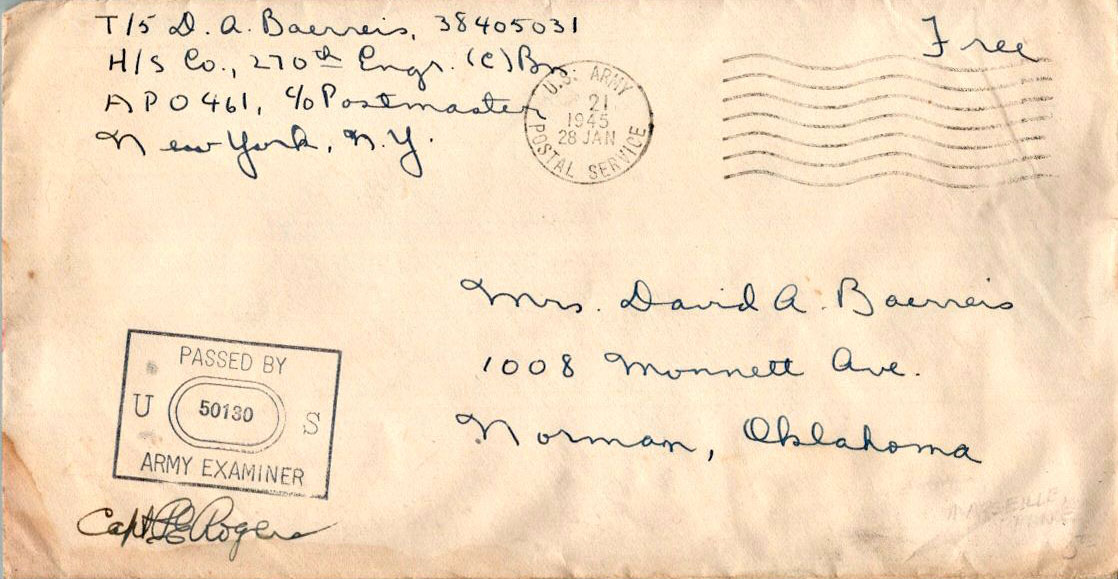 T/5 D. A. Baerreis, 38405031
H/S Co., 270th Engr. (C) Bn
APO 461, c/o Postmaster
New York, N.Y.
Free
U.S. ARMY
21
1945
28 JAN
POSTAL SERVICE
Mrs. David A. Baerreis
1008 Monnett Ave.
Norman, Oklahoma
PASSED BY
U 50130 S
ARMY EXAMINER
Capt Rogers
MARSEILLE,